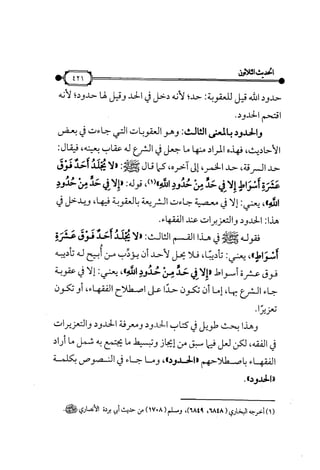 الحديث الثلاثون
٤٢١
حدود الله قيل للعقوبة: حد؛ لأنه دخل في الحد وقيل لها حدود؛ لأنه
اقتحم الحدود.
والحدود بالمعنى الثالث: وهو العقوبات التي جاءت في بعض
الأحاديث، فهذه المراد منها ما جعل في الشرع له عقاب بعينه، فيقال:
حد السرقة، حد الخمر، إلى آخره، كما قال ﷺ: «لا يُجْلَدُ أَحَدٌ فَوْقَ
عَشَرَةِ أَسْوَاطٍ إِلا فِي حَدٍّ مِنْ حُدُودِ اللَّهِ»(١)، قوله: «إِلا فِي حَدٍّ مِنْ حُدُودِ
اللَّهِ»، يعني: إلا في معصية جاءت الشريعة بالعقوبة فيها، ويدخل في
هذا: الحدود والتعزيرات عند الفقهاء.
فقوله ﷺ في هذا القسم الثالث: «لا يُجْلَدُ أَحَدٌ فَوْقَ عَشَرَةِ
أَسْوَاطٍ»، يعني: تأديبًا، فلا يحل لأحد أن يؤدب من أبيح له تأديبه
فوق عشرة أسواط «إِلا فِي حَدٍّ مِنْ حُدُودِ اللَّهِ»، يعني: إلا في عقوبة
جاء الشرع بها، إما أن تكون حدًا على اصطلاح الفقهاء، أو تكون
تعزيرًا.
وهذا بحث طويل في كتاب الحدود ومعرفة الحدود والتعزيرات
في الفقه، لكن لعل فيما سبق من إيجاز وتبسيط ما يجتمع به شمل ما أراد
الفقهاء باصطلاحهم «الحدود»، وما جاء في النصوص بكلمة
«الحدود».
(١) أخرجه البخاري (٦٨٤٨، ٦٨٤٩)، ومسلم (١٧٠٨) من حديث أبي بردة الأنصاري ﷺ.